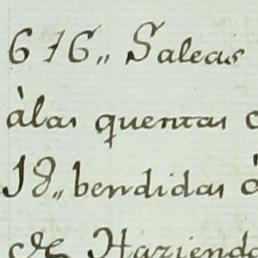 676,, Saleas
àlas quentas
18,, bendidas
de Hazienda